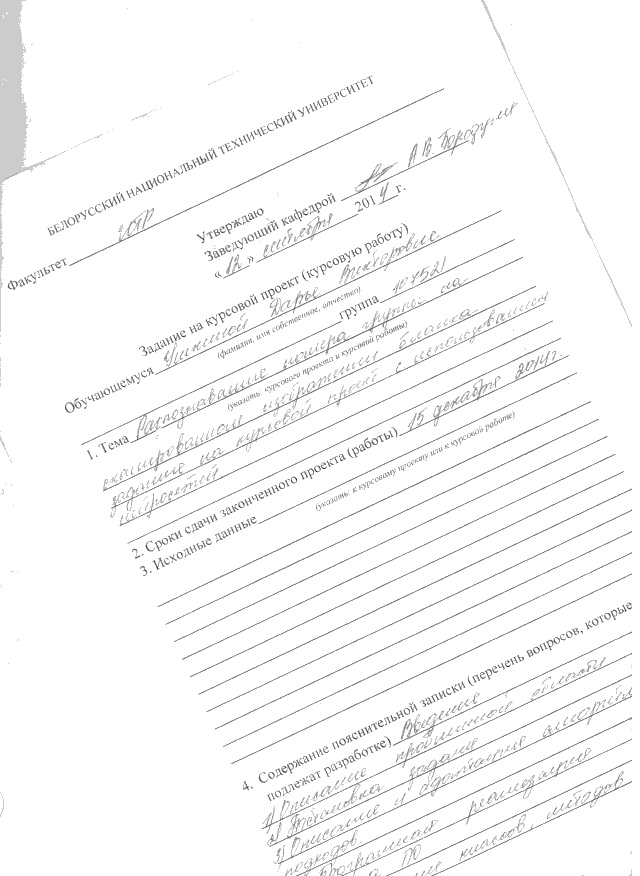 БЕЛОРУССКИЙ НАЦИОНАЛЬНЫЙ ТЕХНИЧЕСКИЙ УНИВЕРСИТЕТ
Факультет
Утверждаю
Заведующий кафедрой А.В. Бородуля
« 12 » сентября 2014 г.
Задание на курсовой проект (курсовую работу)
Обучающемуся Дарье Викторовне
(фамилия, имя собственное, отчество)
группа 107521
1. Тема Распознавание номера группы на
(указать: курсового проекта и курсовой работы)
сканированном изображении бланка
задание на курсовой проект с использованием
нейросетей
2. Сроки сдачи законченного проекта (работы) 15 декабря 2014г.
(указать: к курсовому проекту или к курсовой работе)
3. Исходные данные
4. Содержание пояснительной записки (перечень вопросов, которые
подлежат разработке) Введение
1) Описание проблемной области
2) Постановка задания
3) Описание и адаптация
подходов
Программная реализация
ПО
классов, методов